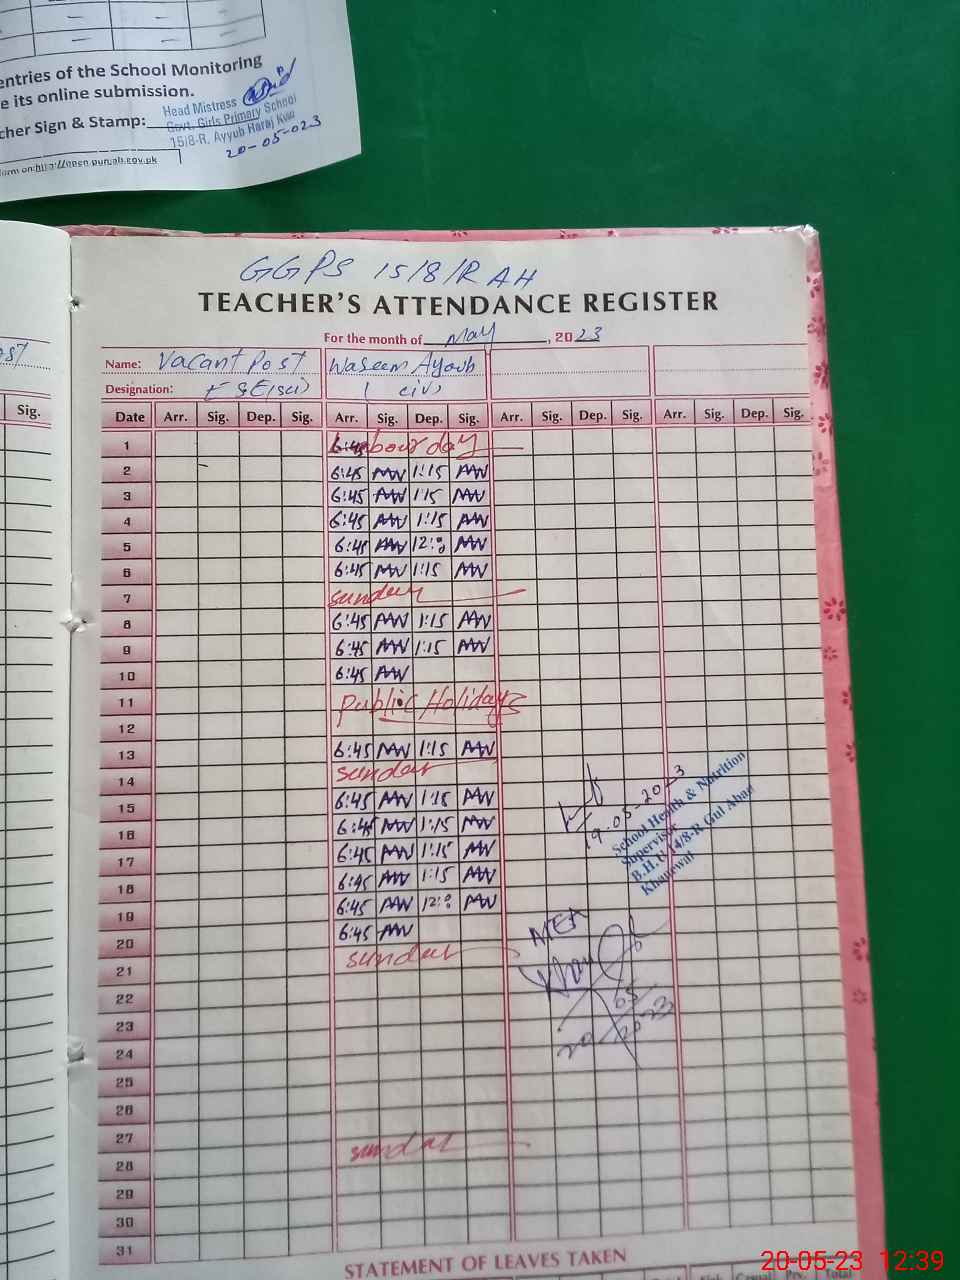 entries of the School Monitoring
e its online submission.
cher Sign & Stamp:
Head Mistress
Govt. Girls Primary School
15/8-R. Ayyub Haraj Kwa
20-05-023
orm on:http://open.punjab.gov.pk
GGPS 15/8/R AH
TEACHER'S ATTENDANCE REGISTER
For the month of May, 2023
Name: Vacant Post Waseem Ayoub
Designation: ESE(sci) ( civ)
Sig. Date Arr. Sig. Dep. Sig. Arr. Sig. Dep. Sig. Arr. Sig. Dep. Sig. Arr. Sig. Dep. Sig.
1 6:45 Labour day
2 6:45 1:15
3 6:45 1:15
4 6:45 1:15
5 6:45 12:00
6 6:45 1:15
7 sunday
8 6:45 1:15
9 6:45 1:15
10 6:45
11 Public Holidays
12
13 6:45 1:15
14 sunday
15 6:45 1:15
16 6:45 1:15
17 6:45 1:15
18 6:45 1:15
19 6:45 12:00
20 6:45
21 sunday
22
23
24
25
26
27
28 sunday
29
30
31
19-05-2023
School Health & Nutrition
Supervisor
B.H.U 14/8-R Gul Abad
Khanewal
MEA
20/05/2023
STATEMENT OF LEAVES TAKEN
Casual Prv. Total
20-05-23 12:39